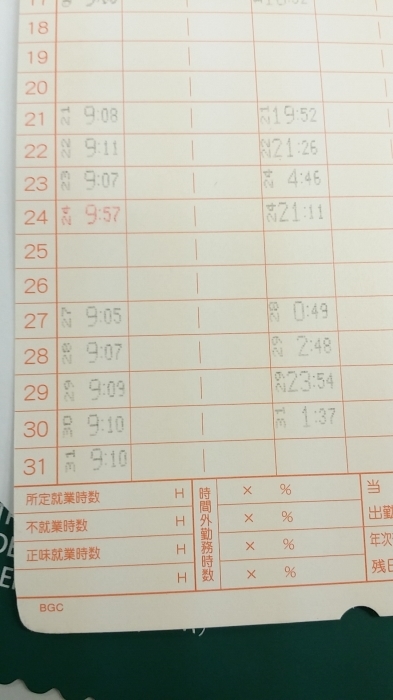 18
19
20
21 21 9:08 21 19:52
22 22 9:11 22 21:26
23 23 9:07 24 4:46
24 24 9:57 24 21:11
25
26
27 27 9:05 28 0:49
28 28 9:07 29 2:48
29 29 9:09 29 23:54
30 30 9:10 31 1:37
31 31 9:10
所定就業時数 H
不就業時数 H
正味就業時数 H
H
時間外勤務時数
× %
× %
× %
× %
当
出勤
年次
残日
BGC